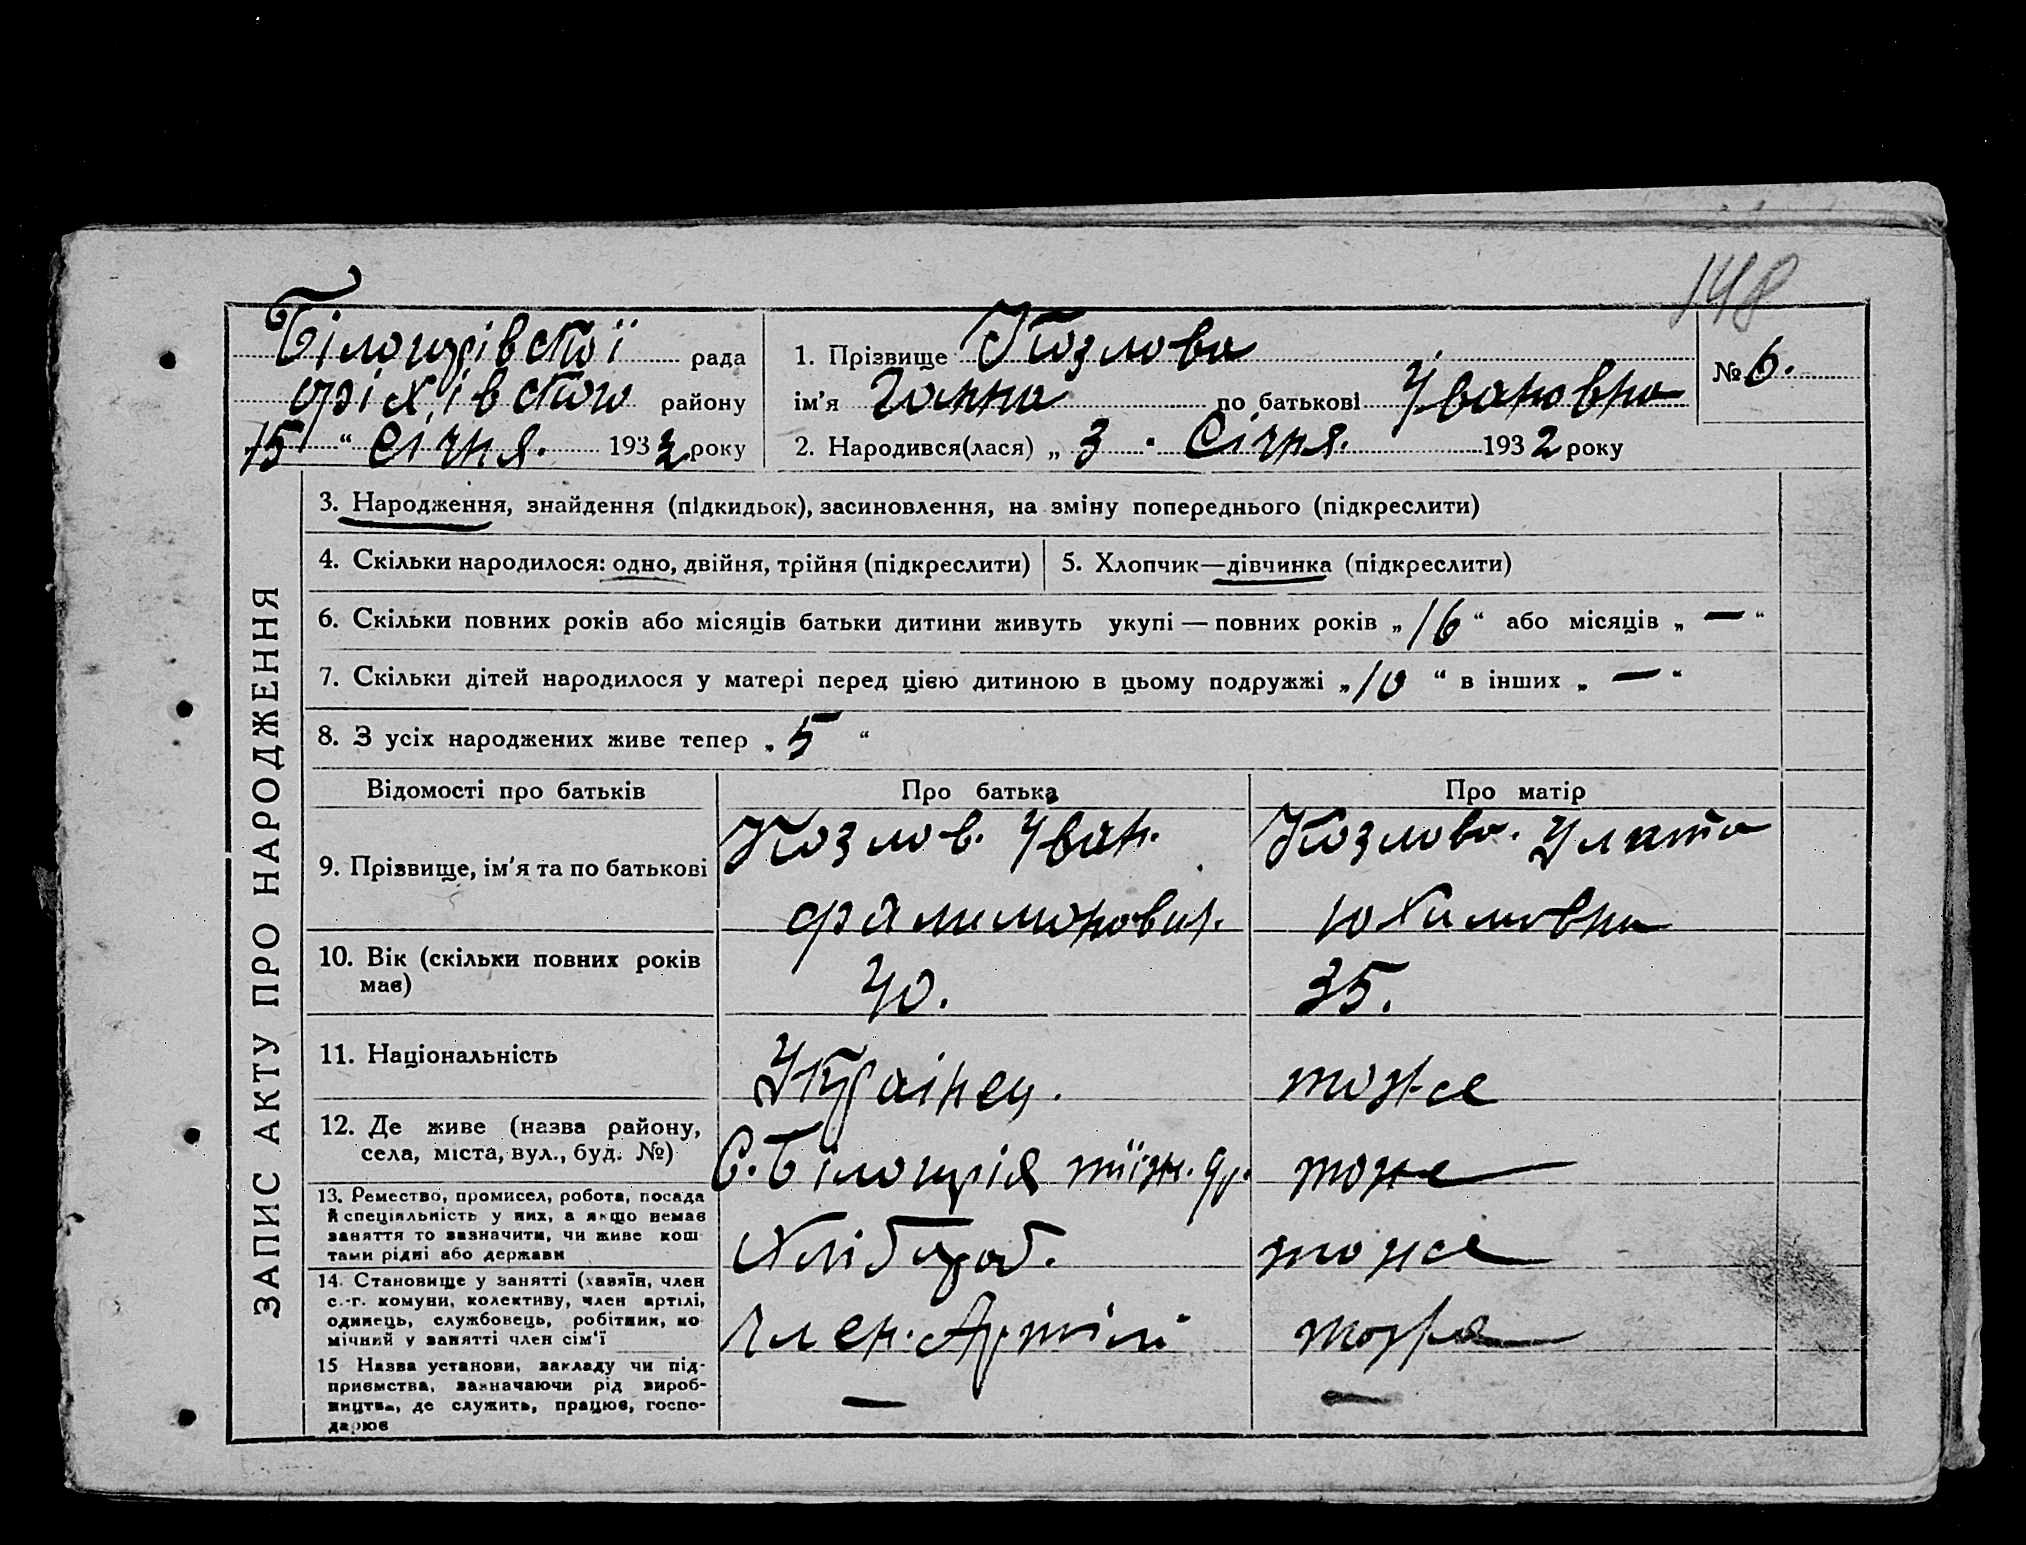 148
Білогирівської рада
Оріхівського району
15 " Січня. 1932 року
1. Прізвище Козлова
ім'я Ганна по батькові Івановна
№ 6.
2. Народився(лася) „ 3 . Січня. 1932 року
ЗАПИС АКТУ ПРО НАРОДЖЕННЯ
3. Народження, знайдення (підкидьок), засиновлення, на зміну попереднього (підкреслити)
4. Скільки народилося: одно, двійня, трійня (підкреслити)
5. Хлопчик—дівчинка (підкреслити)
6. Скільки повних років або місяців батьки дитини живуть укупі — повних років „ 16 “ або місяців „ — “
7. Скільки дітей народилося у матері перед цією дитиною в цьому подружжі „ 10 “ в інших „ — “
8. З усіх народжених живе тепер „ 5 “
Відомості про батьків
Про батька
Про матір
9. Прізвище, ім'я та по батькові
Козлов. Уван.
Козлова. Улита
Юхимовна
10. Вік (скільки повних років
має)
40.
35.
11. Національність
Українец.
тоже
12. Де живе (назва району,
села, міста, вул., буд. №)
С. Білогирія
тоже
13. Ремество, промисел, робота, посада
й спеціяльність у них, а якщо немає
заняття то зазначити, чи живе кош
тами рідні або держави
Хлібороб.
тоже
14. Становище у занятті (хазяїн, член
с.-г. комуни, колективу, член артілі,
одинець, службовець, робітник, по
мічний у занятті член сім'ї
Член. Артілі
тоже
15 Назва установи, закладу чи під-
приємства, зазначаючи рід вироб-
ництва, де служить, працює, госпо-
дарює
—
—